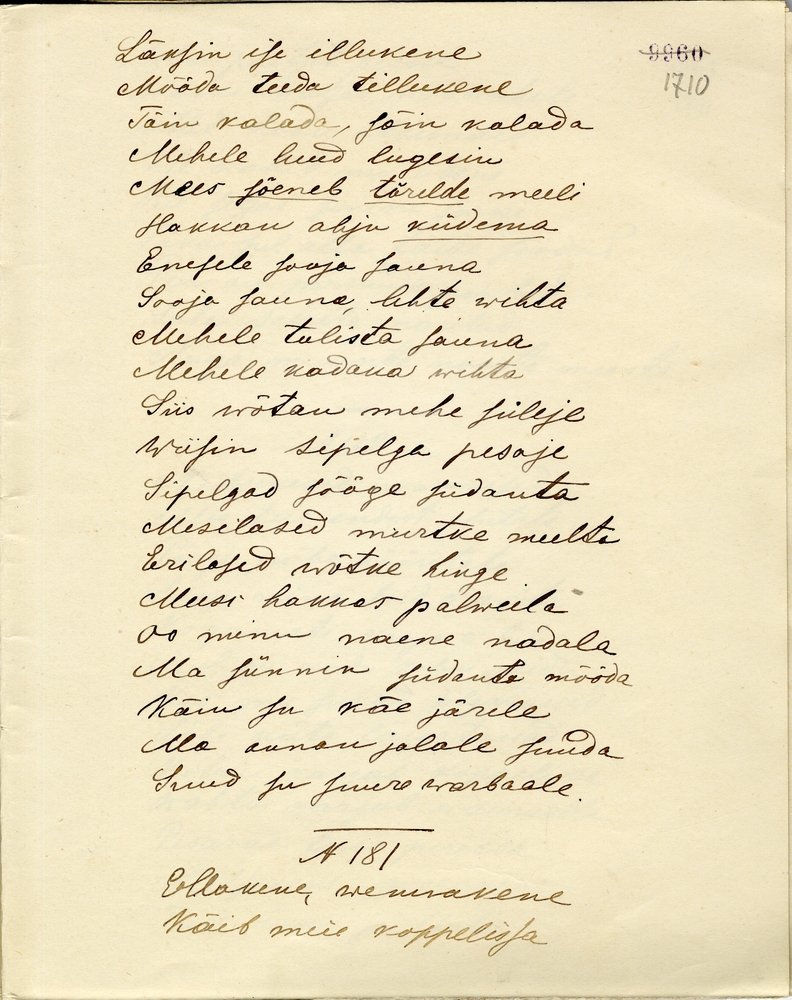 9960
1710
Läksin ise illukene
Mööda teeda tillukene
Tõin kalada, sõin kalada
Mehele luud lugesin
Mees sõeneb tõrelde meeli
Hakkan ahju küdema
Enesele sooja sauna
Sooja sauna, lehte wihta
Mehele tulista sauna
Mehele kadaka wihta
Siis wõtan mehe süleje
Wiisin sipelga pesaje
Sipelgad sööge südanta
Mesilased murtke meelta
Erilased wõtke hinge
Meesi hakkas palweila
Oo minu naene nadala
Ma sünnin südanta mööda
Käin su käe järele
Ma annan jalale suuda
Suud su suure warbaale.
N 181
Ellakene, wennakene
Käib meie koppelissa